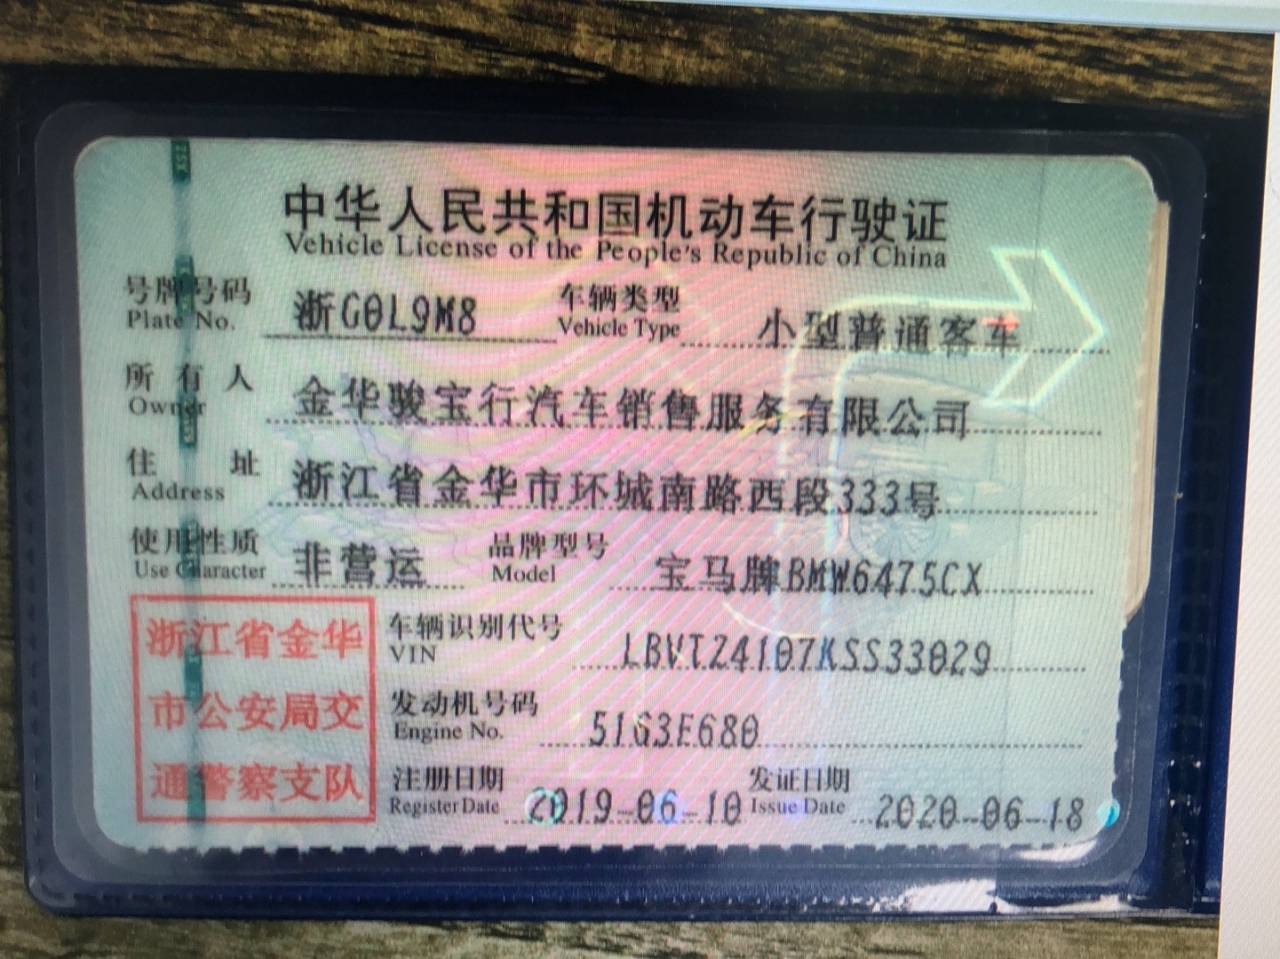 中华人民共和国机动车行驶证
Vehicle License of the People's Republic of China
号牌号码 浙G0L9M8 车辆类型 小型普通客车
Plate No. Vehicle Type
所有人 金华骏宝行汽车销售服务有限公司
Owner
住址 浙江省金华市环城南路西段333号
Address
使用性质 非营运 品牌型号 宝马牌BMW6475CX
Use Character Model
浙江省金华
市公安局交
通警察支队
车辆识别代号 LBVTZ4107KSS33029
VIN
发动机号码 51G3E680
Engine No.
注册日期 2019-06-10 发证日期 2020-06-18
Register Date Issue Date